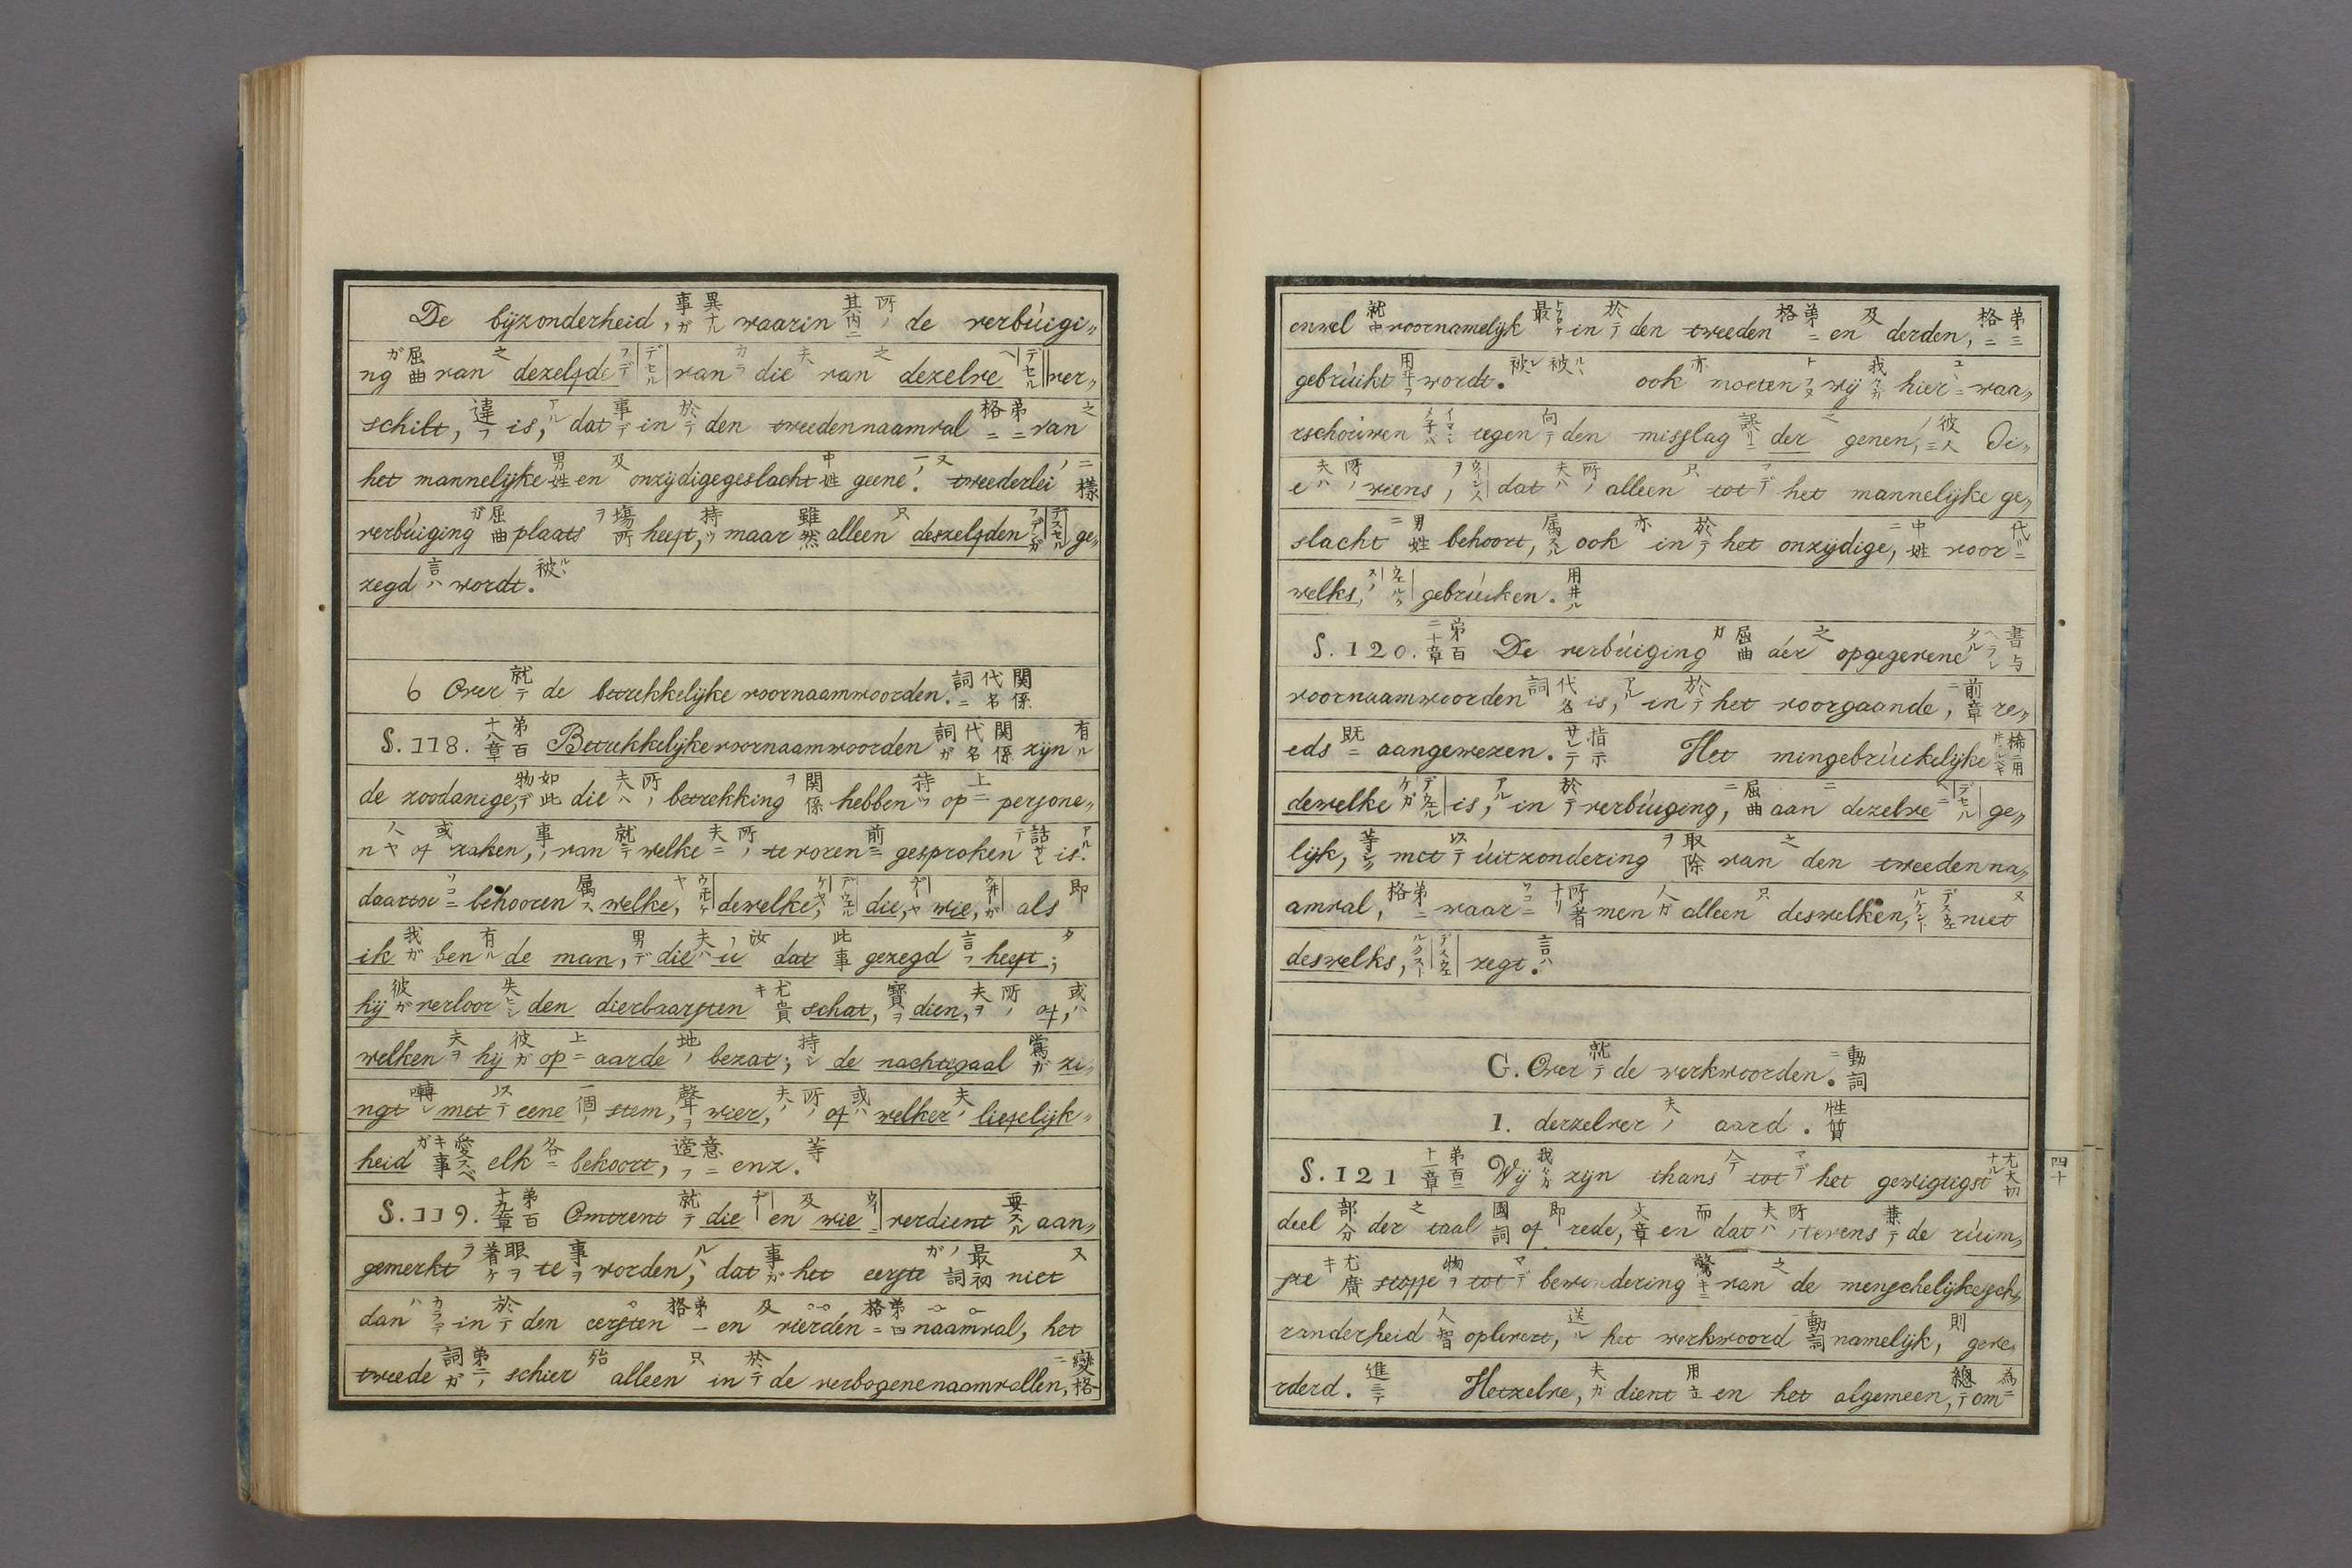 De bijzonderheid, 事ガ 異ナル waarin 其内ニ 所ノ de verbúigi〃
ng ガ屈曲 van 之 dezelfde フデデセル van カラ die 夫 van 之 dezelve ヘデセル ver〃
schilt, 違フ is, アル dat 事デ in 於テ den tweeden naamval 格ニ弟二 van 之
het mannelijke 男姓 en 及 onzijdige geslacht 中姓 geene 一ノ又 tweederlei ノ二様
verbúiging ガ屈曲 plaats ヲ塲所 heeft, 持ツ maar 雖然 alleen 只 deszelfden フデンガデスセル ge〃
zegd 言ハ wordt. 被ルヽ
6 Over 就テ de betrekkelijke voornaamwoorden. 詞ニ代名関係
§. 118. 十八章弟百 Betrekkelijke voornaamwoorden 詞ガ代名関係 zijn 有ル
de zoodanige, 物デ如此 die 夫ハ所ノ betrekking ヲ関係 hebben 持ツ op 上ニ persone〃
n 人ヤ of 或 zaken, 事ノ van 就テ welke 夫ニ所ノ te voren 前ニ gesproken テ話サレ is. アル
daartoe ソコニ behooren 属ス welke, ヤウエルケ dewelke, ケヤデウエル die, ヂーヤ wie, ウ井ーガ als 即
ik 我ガ ben 有ル de man, 男デ die 夫ハ ú ノ汝 dat 此事 gezegd 言フ heeft; タ
hij 彼ガ verloor 失ヒシ den dierbaarsten キ尤貴 schat, 寳ヲ dien, 夫ヲ所ノ of, 或ハ
welken 夫ヲ hij 彼ガ op 上ニ aarde 地ノ bezat; 持シ de nachtegaal 鴬ガ zi〃
ngt 囀ル met 以テ eene 一個ノ stem, 聲ヲ wier, 夫ノ所ノ of 或ハ welker 夫ノ liefelijk〃
heid ガキ事愛スベ elk 各ニ bekoort, 適フ意ニ enz. 等
§. 119. 十九章弟百 Omtrent 就テ die ヂー en 及 wie ウイーニ verdient 要スル aan〃
gemerkt ラ着ケ眼ヲ te 事ヲ worden, ルヽ dat 事ガ het eerste ガノ詞最初 niet 又
dan ハカラデ in 於テ den eersten 格弟一 en 及 vierden 格ニ弟四 naamval, het
tweede 詞ガ弟二ノ schier 殆 alleen 只 in 於テ de verbogene naamvallen, ニ變格
enwel 就中 voornamelijk 最 in 於テ den tweeden 格ニ弟 en 及 derden, 格ニ弟三
gebrúikt 用井ラ wordt. 被レ被ルヽ ook 亦 moeten wij 我々ガ hier コヽニ waa〃
rschoúwen tegen 向テ den misslag 誤リニ der 之 genen, ノ彼人ニ Di〃
e 夫ハ所ノ wiens, ヲウインス dat 夫ハ所ノ alleen 只 tot マデ het mannelijke ge〃
slacht ニ男姓 behoort, 属スル ook 亦 in 於テ het onzijdige, ニ中姓 voor 代ルニ
welks, スノウエルク gebrúiken. 用井ル
§. 120. 二十章弟百 De verbúiging ガ屈曲 dér 之 opgegevene タル書与ヘラレ
voornaamwoorden 詞代名 is, アル in 於テ het voorgaande, ニ前章 re〃
eds 既ニ aangewezen. サレテ指示 Het mingebrúikelijke 稀ニ用
dewelke ケガデウエル is, アル in 於テ verbúiging, ニ屈曲 aan ニ dezelve ヘニデセル ge〃
lijk, 等シク met 以テ úitzondering ヲ取除 van 之 den tweeden na〃
amval, 格弟二 waar ソコニ ナリ所者 men 人ガ alleen 只 deswelken, ルケンドデスウエ niet 又
deswelks, ルクストデスウエ zegt. 言ハ
G. Over 就テ de werkwoorden. ニ動詞
1. derzelver 夫ノ aard. 性質
§. 121 十一章弟百二 Wij 我々ガ zijn thans 今テ tot マデ het gewigtigst ナル尤大切
deel 部分 der 之 taal 國詞 of 即 rede, 文章 en 而 dat 夫ハ所ノ tevens 兼テ de rúim〃
ste キ尤廣 stoffe 物ヲ tot マデ bewondering 驚キニ van 之 de menschelijke sch〃
randerheid 人智 oplevert, 送ル het werkwoord 動詞 namelijk, 則 geve〃
rderd. 進ミテ Hetzelve, 夫ガ dient 用立 en het algemeen, 總テ om 為ニ
四十